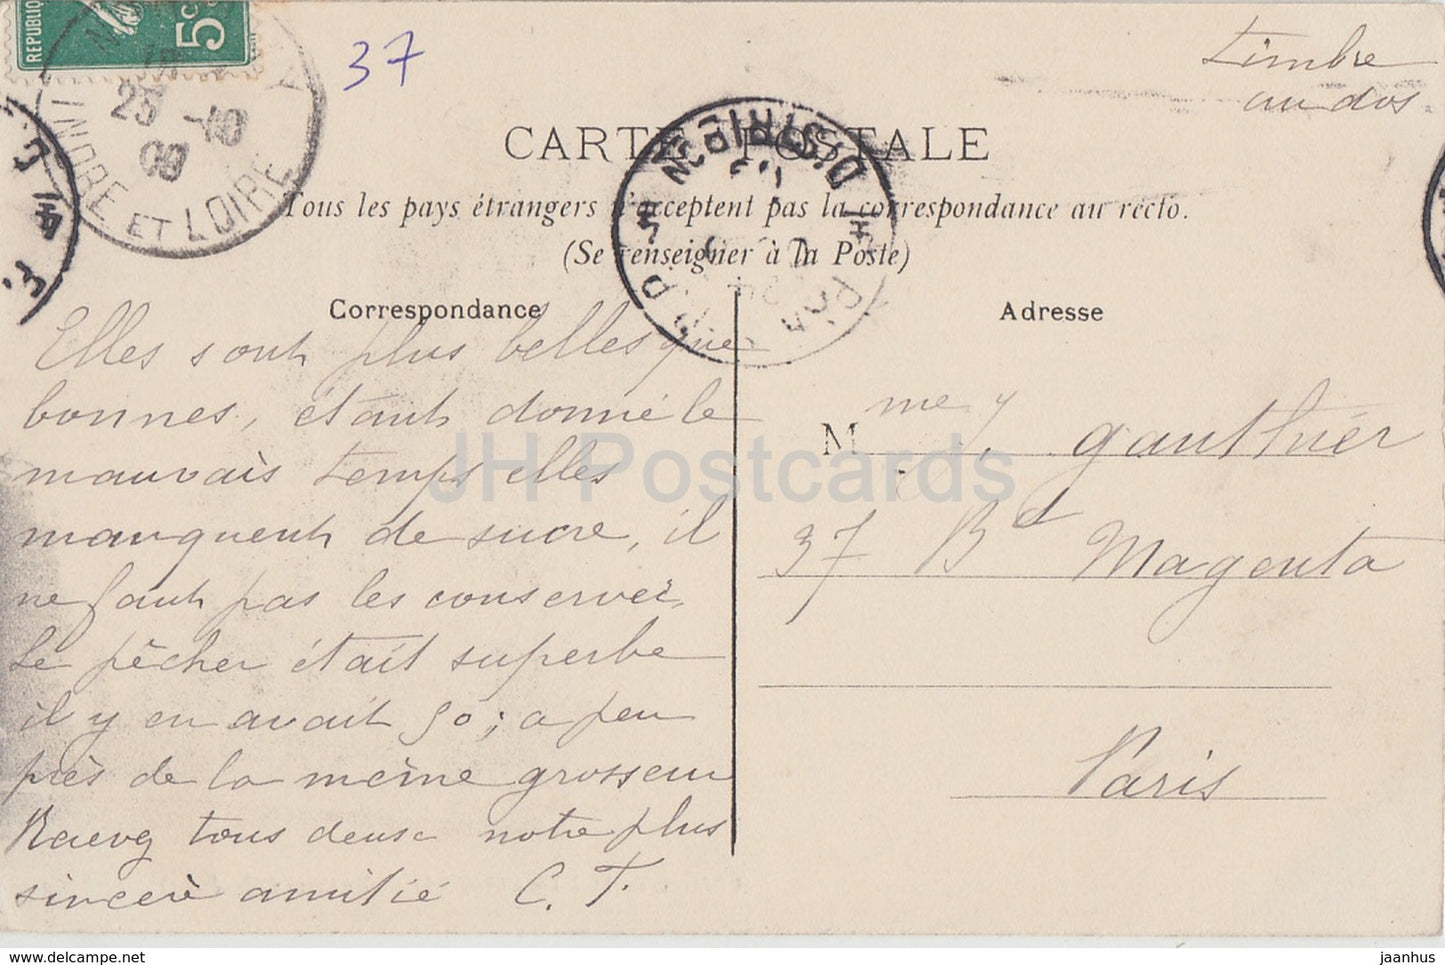 REPUBLIQUE
5c
37
Timbre
au dos
INDRE ET LOIRE
25
08
CARTE POSTALE
Tous les pays étrangers n'acceptent pas la correspondance au recto.
(Se renseigner à la Poste)
Correspondance
Adresse
Elles sont plus belles que
bonnes, étant donné le
mauvais temps elles
manquent de sucre, il
ne faut pas les conserver,
Le pêcher était superbe
il y en avait 50; a peu
près de la même grosseur
Recevez tous deux notre plus
sincère amitié C. T.
Mme J. Gauthier
37 Bd Magenta
Paris
JH Postcards
delcampe.net
jaanhus